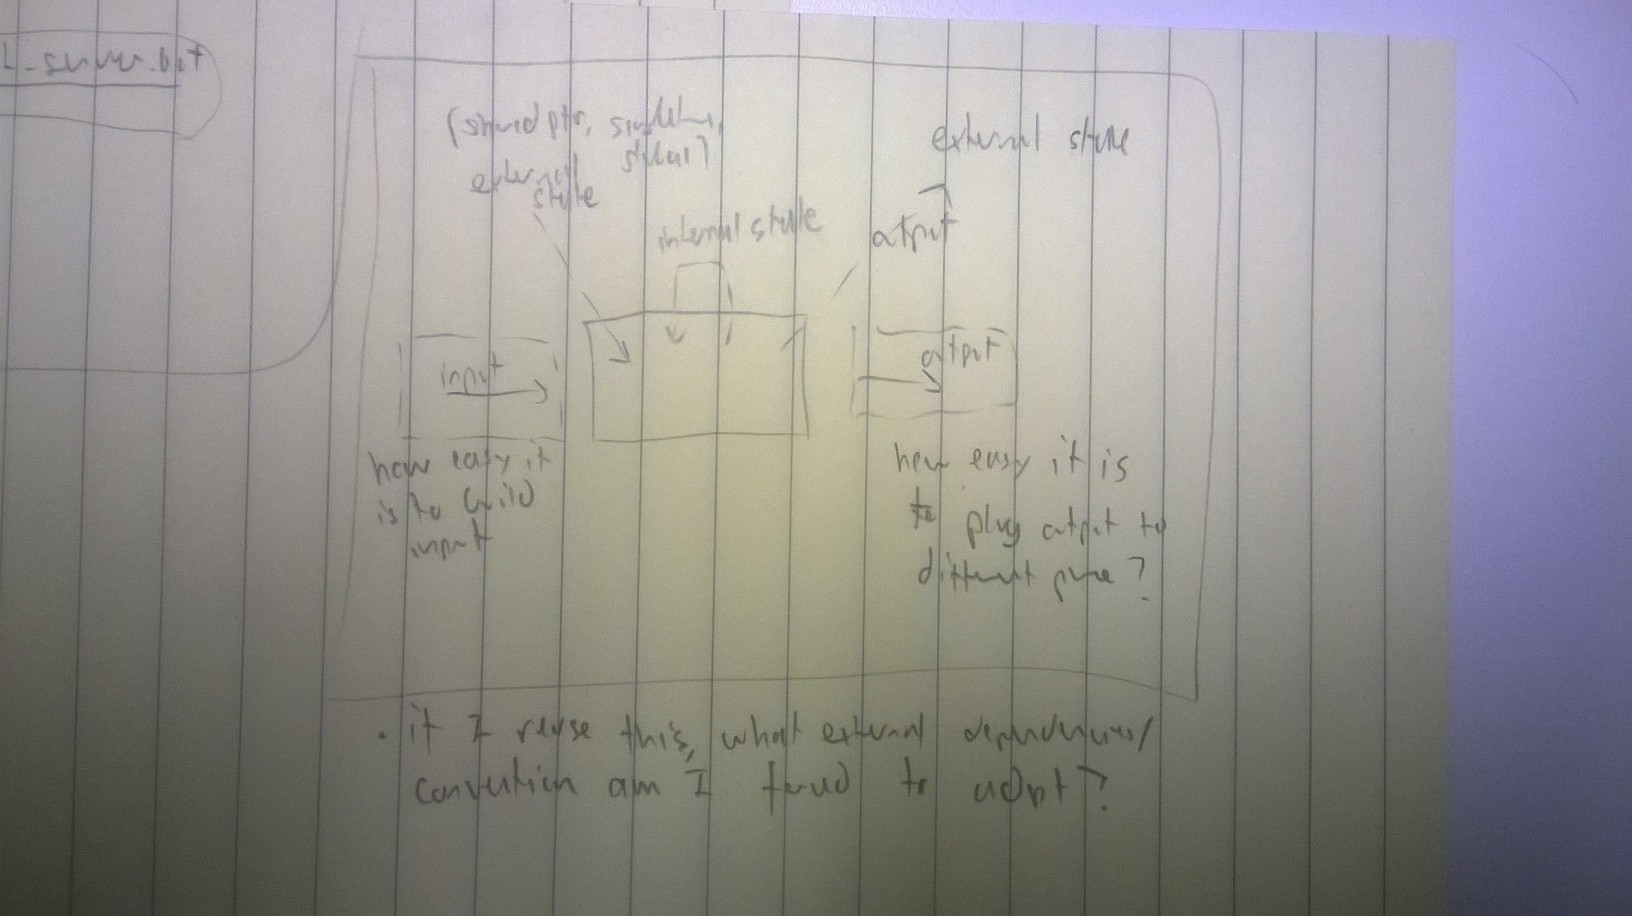 (shared ptr, singleton,
global?)
external
state
external state
internal state
output
input
output
how easy it
is to build
input
how easy it is
to plug output to
different place?
. if I reuse this, what external dependencies/
convention am I forced to adopt?